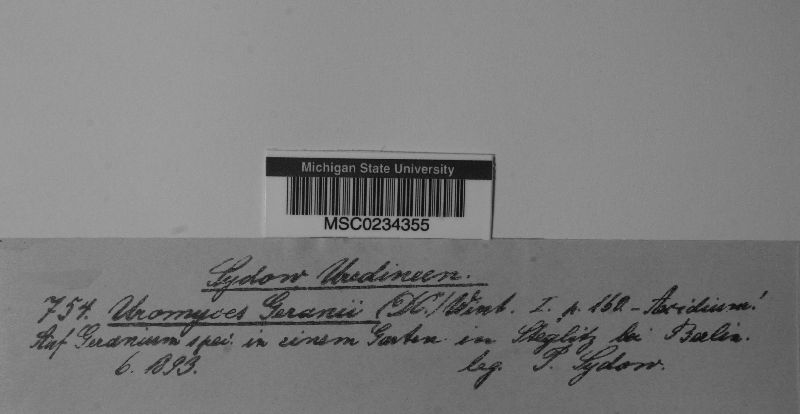 Michigan State University
MSC0234355
Sydow Uredineen.
754. Uromyces Geranii (DC.) Wint. I. p. 160 - Aecidium!
Auf Geranium spec. in einem Garten in Steglitz bei Berlin.
6. 1893. leg. P. Sydow.